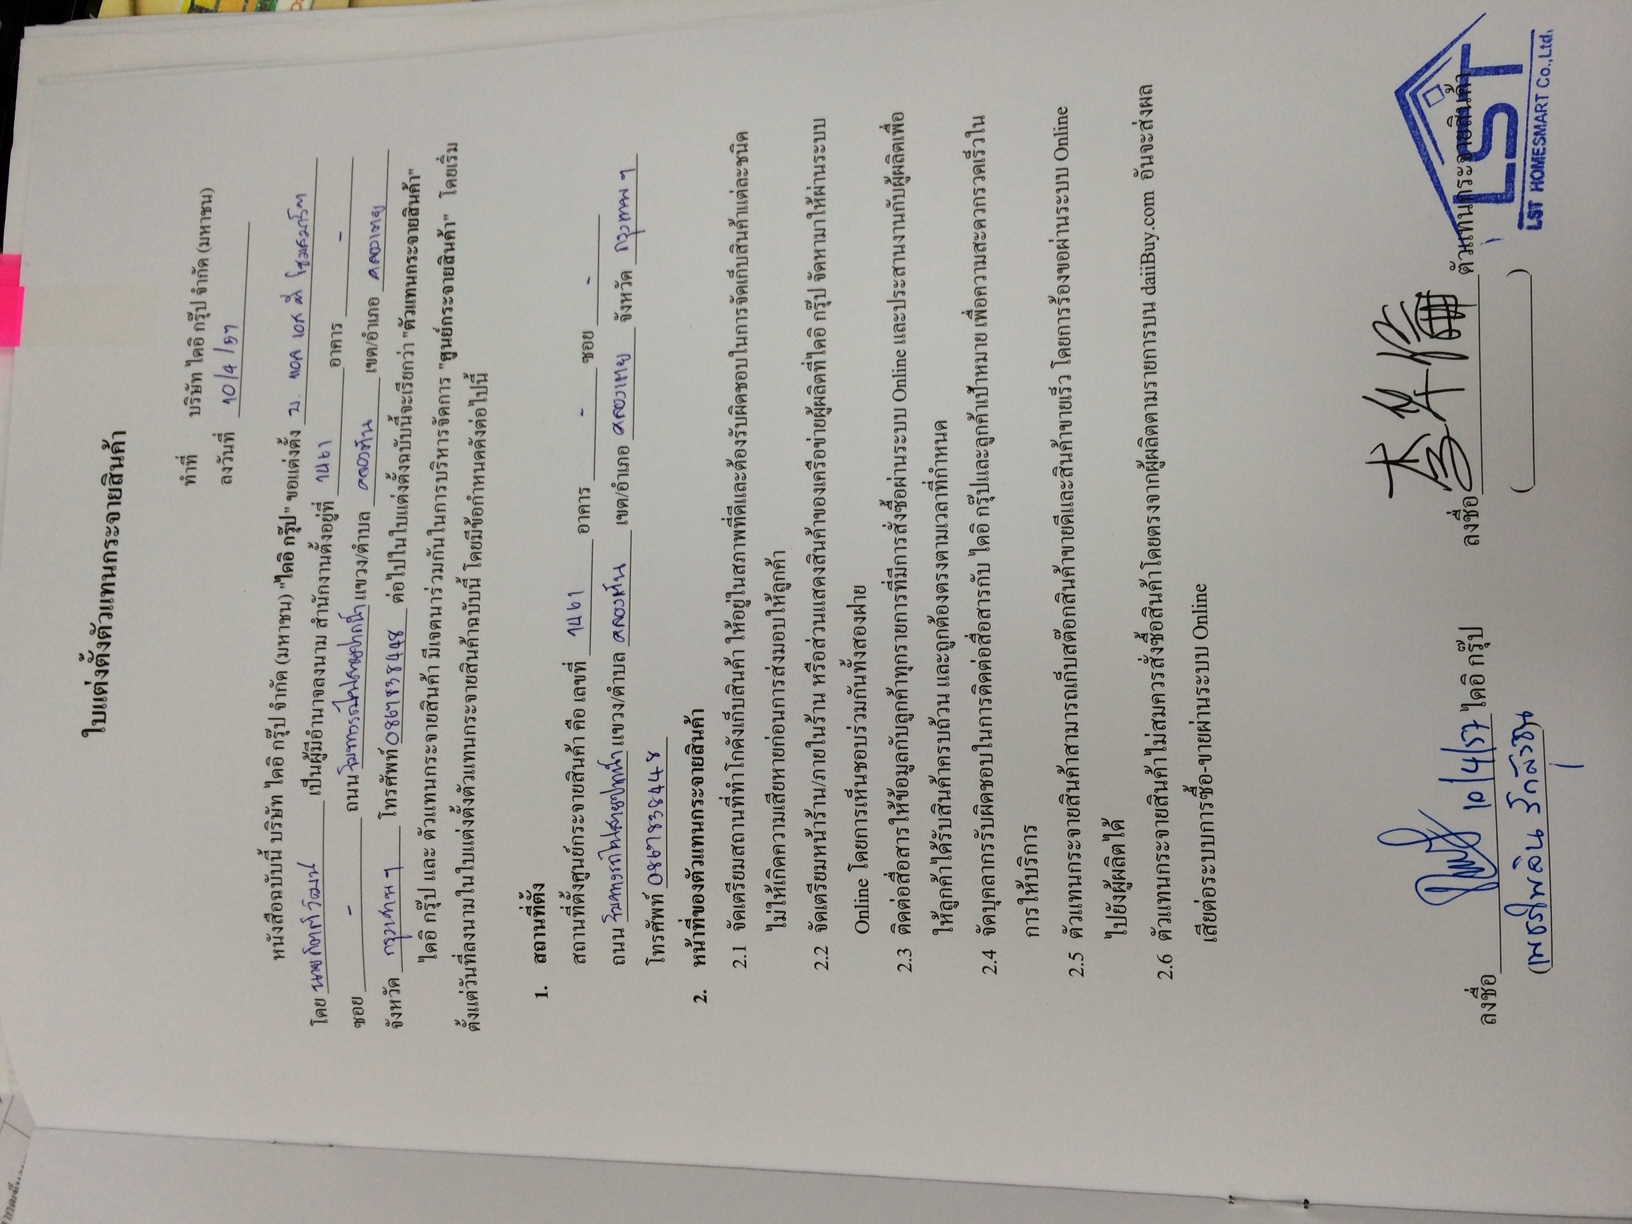 ใบแต่งตั้งตัวแทนกระจายสินค้า
ทำที่ บริษัท ไดอิ กรุ๊ป จำกัด (มหาชน)
ลงวันที่ 10/4/57
หนังสือฉบับนี้ บริษัท ไดอิ กรุ๊ป จำกัด (มหาชน) "ไดอิ กรุ๊ป" ขอแต่งตั้ง บ. แอล เอส ที โฮมสมาร์ท
โดย เป็นผู้มีอำนาจลงนาม สำนักงานตั้งอยู่ที่ 1461 อาคาร -
ซอย - ถนน ริมทางรถไฟสายปากน้ำ แขวง/ตำบล คลองตัน เขต/อำเภอ คลองเตย
จังหวัด กรุงเทพฯ โทรศัพท์ 0867838448 ต่อไปในใบแต่งตั้งฉบับนี้จะเรียกว่า "ตัวแทนกระจายสินค้า"
ไดอิ กรุ๊ป และ ตัวแทนกระจายสินค้า มีเจตนาร่วมกันในการบริหารจัดการ "ศูนย์กระจายสินค้า" โดยเริ่ม
ตั้งแต่วันที่ลงนามในใบแต่งตั้งตัวแทนกระจายสินค้าฉบับนี้ โดยมีข้อกำหนดดังต่อไปนี้
1. สถานที่ตั้ง
สถานที่ตั้งศูนย์กระจายสินค้า คือ เลขที่ 1461 อาคาร - ซอย -
ถนน ริมทางรถไฟสายปากน้ำ แขวง/ตำบล คลองตัน เขต/อำเภอ คลองเตย จังหวัด กรุงเทพฯ
โทรศัพท์ 0867838448
2. หน้าที่ของตัวแทนกระจายสินค้า
2.1 จัดเตรียมสถานที่ทำโกดังเก็บสินค้า ให้อยู่ในสภาพที่ดีและต้องรับผิดชอบในการจัดเก็บสินค้าแต่ละชนิด
ไม่ให้เกิดความเสียหายก่อนการส่งมอบให้ลูกค้า
2.2 จัดเตรียมหน้าร้าน/ภายในร้าน หรือส่วนแสดงสินค้าของเครือข่ายผู้ผลิตที่ไดอิ กรุ๊ป จัดหามาให้ผ่านระบบ
Online โดยการเห็นชอบร่วมกันทั้งสองฝ่าย
2.3 ติดต่อสื่อสารให้ข้อมูลกับลูกค้าทุกรายการที่มีการสั่งซื้อผ่านระบบ Online และประสานงานกับผู้ผลิตเพื่อ
ให้ลูกค้าได้รับสินค้าครบถ้วน และถูกต้องตรงตามเวลาที่กำหนด
2.4 จัดบุคลากรรับผิดชอบในการติดต่อสื่อสารกับ ไดอิ กรุ๊ปและลูกค้าเป้าหมาย เพื่อความสะดวกรวดเร็วใน
การให้บริการ
2.5 ตัวแทนกระจายสินค้าสามารถเก็บสต๊อกสินค้าขายดีและสินค้าขายเร็ว โดยการร้องขอผ่านระบบ Online
ไปยังผู้ผลิตได้
2.6 ตัวแทนกระจายสินค้าไม่สมควรสั่งซื้อสินค้าโดยตรงจากผู้ผลิตตามรายการบน daiiBuy.com อันจะส่งผล
เสียต่อระบบการซื้อ-ขายผ่านระบบ Online
ลงชื่อ 10/4/57 ไดอิ กรุ๊ป
ลงชื่อ 李华倫 ตัวแทนกระจายสินค้า
LST
LST HOMESMART Co.,Ltd.